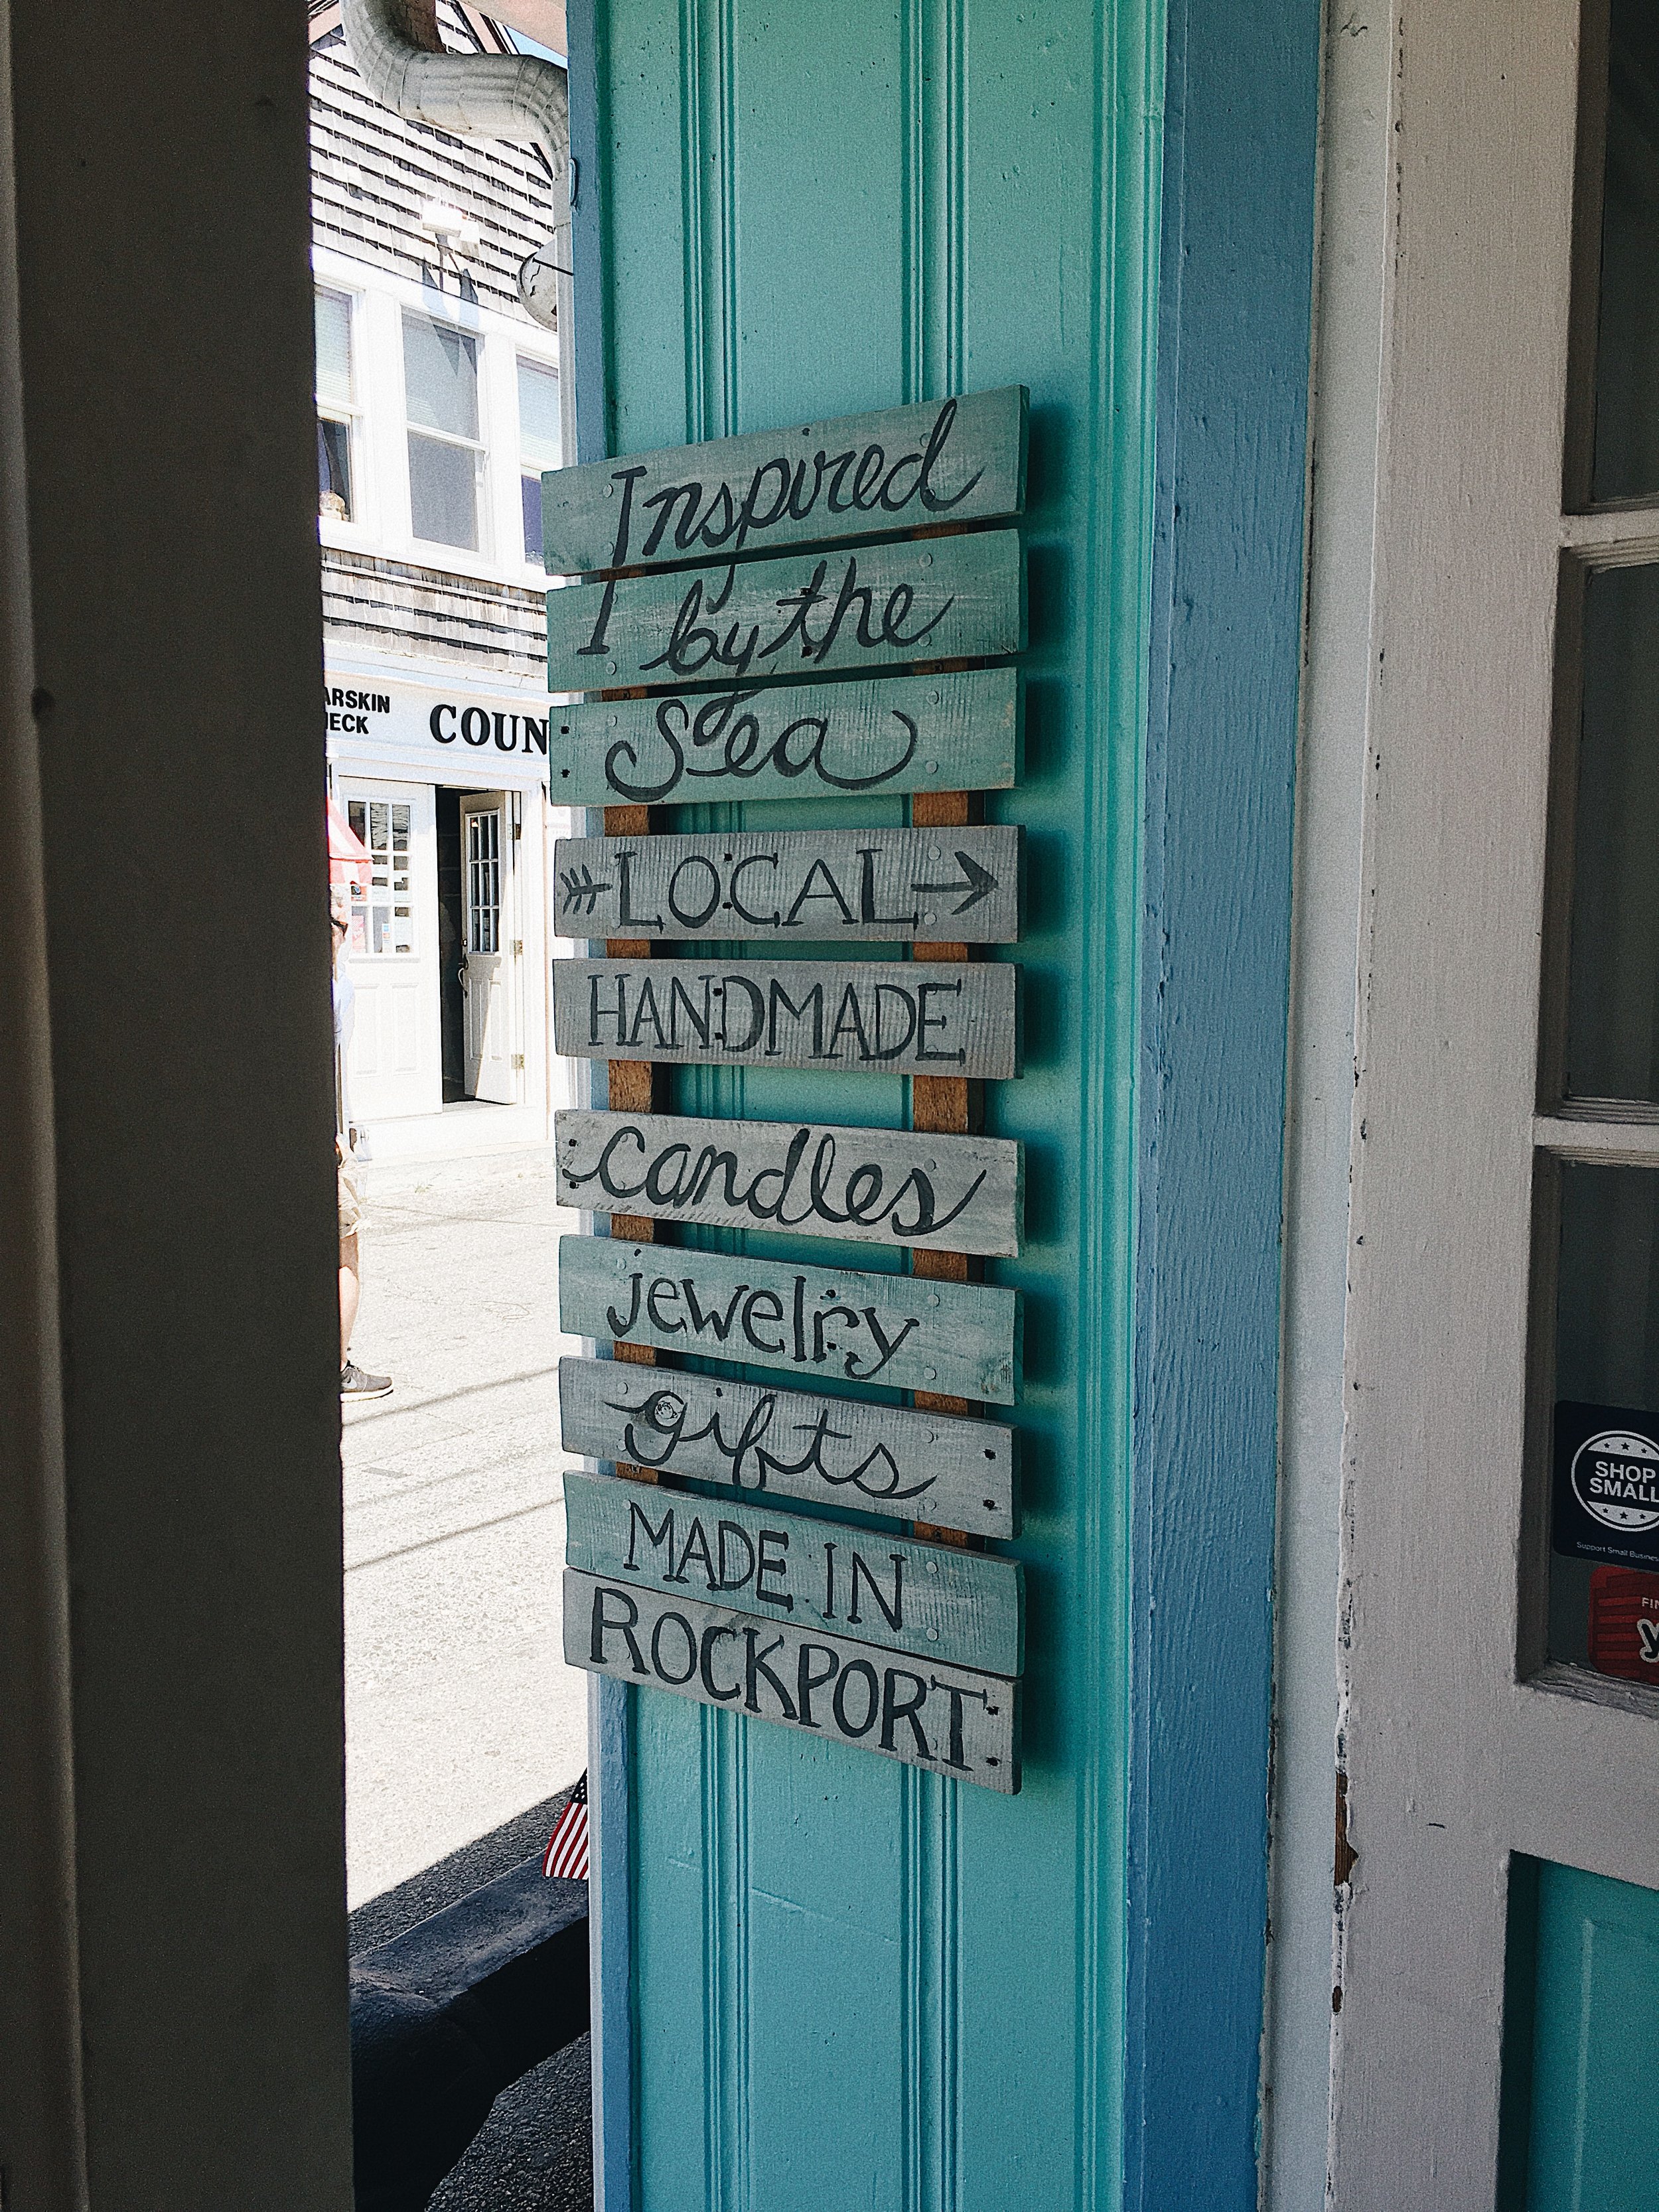 Inspired
by the
Sea
LOCAL
HANDMADE
candles
jewelry
gifts
MADE IN
ROCKPORT
ARSKIN
ECK
COUN
SHOP
SMALL
Support Small Business
FIN